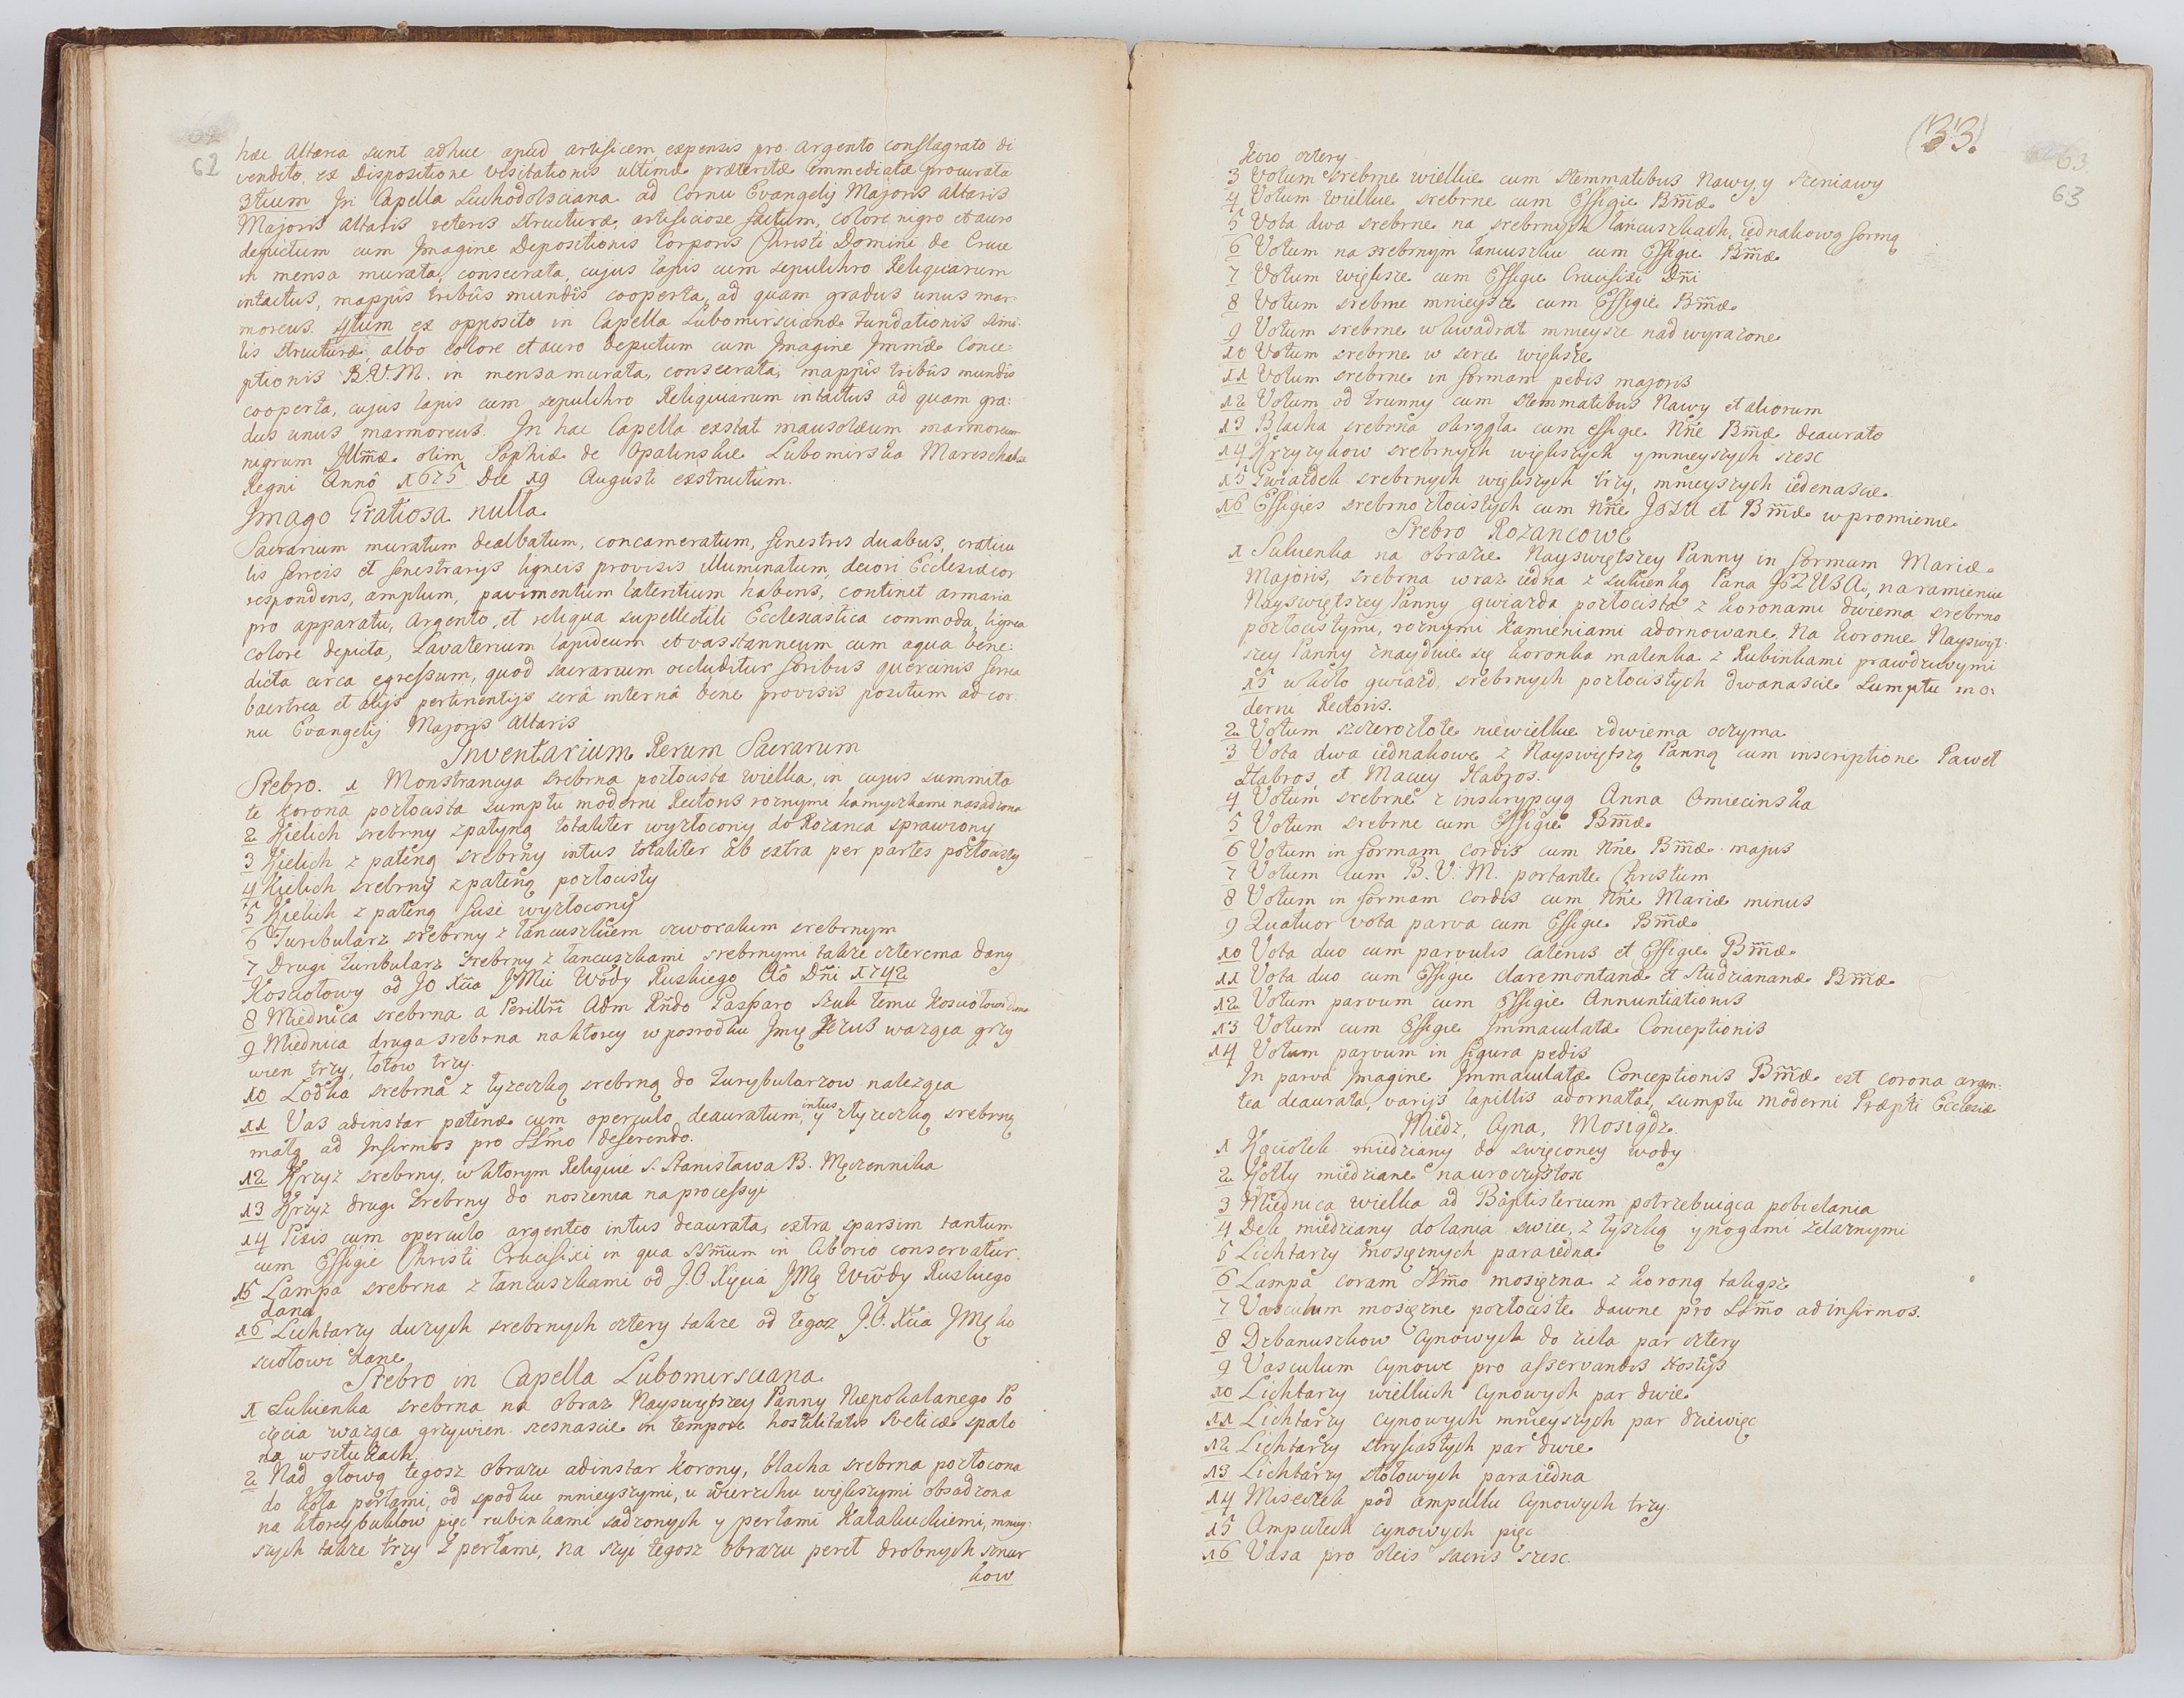 62
hæc Altaria sunt adhuc apud artificem expensis pro argento conflagrato di
vendito, ex Dispositione visitationis ultimæ præteritæ immediatæ procurata
3tium In Capella Suchodolsciana ad Cornu Evangelij Majoris Altaris
Majoris Altaris veteris structuræ, artificiose factum, colore nigro et auro
depictum cum Imagine Depositionis Corporis Christi Domini de Cruce
in mensa murata, consecrata, cujus lapis cum sepulchro Reliquiarum
intactus, mappis tribus mundis cooperta, ad quam gradus unus mar-
moreus. 4tum ex opposito in Capella Lubomirscianæ Fundationis simi
lis structuræ, albo colore et auro depictum cum Imagine Immæ Conce
ptionis B.V.M. in mensa murata, consecrata, mappis tribus mundis
cooperta, cujus lapis cum sepulchro Reliquiarum intactus ad quam gra:
dus unus marmoreus. In hac Capella exstat mausolæum marmoreum
nigrum Illmæ olim Sophiæ de Opalinskie Lubomirska Mareschalcæ
Regni Annô 1675 Die 19 Augusti exstructum.
Imago Gratiosa nulla.
Sacrarium muratum dealbatum, concameratum, fenestris duabus, craticu
lis ferreis et fenestrarijs ligneis provisis illuminatum, decori Ecclesiæ cor
respondens, amplum, pavimentum latentium habens, continet armaria
pro apparatu, Argento, et reliqua supellectili Ecclesiastica commoda, lignea
colore depicta, Lavaterium lapideum et vas stanneum cum aqua bene:
dicta circa egressum, quod sacrarium occluditur foribus quercinis ferrea
baertrea et alijs pertinentijs serâ internâ bene provisis positum ad cor
nu Evangelij Majoris Altaris
Inventarium Rerum Sacrarum
Srebro. 1 Monstrancya srebrna pozłocista wielka, in cujus summita
te korona pozłocista sumptu moderni Rectoris roznymi kamyczkami nasadzona
2 Kielich srebrny z patyną totaliter wyzłocony do Rozanca sprawiony
3 Kielich z pateną srebrny intus totaliter ab extra per partes pozłocisty
4 Kielich srebrny z pateną pozłocisty
5 Kielich z pateną suse wyzłocony
6 Turibularz srebrny z łancuszkiem czworakim srebrnym
7 Drugi Turibularz srebrny z łancuszkami srebrnymi także czterema dany
Kosciołowy od JO Xcia JMci Wdy Ruskiego Ao Dni 1742
8 Miednica srebrna a Perillri Adm Rndo Gasparo Szule temu kosciołowi dana
9 Miednica druga srebrna na ktorey w posrodku Imię Jezus wazgca grzy
wien trzy, łotow trzy.
10 Łodka srebrna z łyzeczką srebrną do Turybularzow nalezgca
11 Vas adinstar patenæ cum operculo deauratum intus, y z łyzeczką srebrną
małą ad Infirmos pro SSmo deferendo.
12 Krzyz srebrny, w ktorym Reliquie S. Stanisława B. Męczennika
13 Krzyz drugi srebrny do noszenia na processyi
14 Pixis cum operculo argenteo intus deaurata, extra sparsim tantum
cum Effigie Christi Crucifixi in qua SSmum in Ciborio conservatur.
15 Lampa srebrna z łancuszkami od J.O. Xięcia JMę Wwdy Ruskiego
dana
16 Lichtarzy duzych srebrnych cztery takze od tegoz J.O. Xcia JMę ko
sciołowi dane
Srebro in Capella Lubomirsciana
1 Sukienka srebrna na Obraz Nayswytszey Panny Niepokalanego Po
częcia wazgca grzywien szesnascie in tempore hostilitatis Sveticæ spało
na w sztukach.
2 Nad głową tegosz obrazu adinstar korony, blacha srebrna pozłocona
do koła perłami, od spodku mnieyszymi, u wierzchu większymi obsadzona
na ktorey buklow pięc rubinkami sadzonych y perłami Kałakuckiemi, mney:
szych takze trzy z perłami, na szyi tegosz Obrazu pereł drobnych sznur
kow
(33.)
63
63
kow cztery
3 Votum srebrne wielkie cum stemmatibus Nawy, y szreniawy
4 Votum wielkie srebrne cum Effigie Bmæ
5 Vota dwa srebrne na srebrnych łancuszkach, iednakową formą
6 Votum na srebrnym łancuszku cum Effigie Bmæ
7 Votum większe cum Effigie Crucifixi Dni
8 Votum srebrne mnieysze cum Effigie Bmæ
9 Votum srebrne w kwadrat mnieysze nad wyrazone
10 Votum srebrne w serce większe
11 Votum srebrne in formam pedis majoris
12 Votum od trunny cum stemmatibus Nawy et aliorum
13 Blacha srebrna okrągła cum effigie Nne Bmæ deaurato
14 Krzyzykow srebrnych większych y mnieyszych szesc
15 Gwiazdek srebrnych większych trzy, mnieyszych iedenascie
16 Effigies srebrno złocistych cum Nne JESU et Bmæ w promienie
Srebro Rozancowe
1 Sukienka na obrazie Nayswiętszey Panny in formam Mariæ
Majoris, srebrna wraz iedna z sukienką Pana JEZUSA, na ramieniu
Nayswiętszey Panny gwiazda pozłocista z koronami dwiema srebrno
pozłocistymi, roznymi kamieniami adornowane. Na koronie Nayswięt:
szey Panny znayduie się koronka malenka z Rubinkami prawdziwymi
15 w koło gwiazd srebrnych pozłocistych dwanascie Sumptu mo
derni Rectoris.
2 Votum szczerozłote niewielkie z dwiema oczyma
3 Vota dwa iednakowe z Nayswiętszą Panną cum inscriptione Paweł
Habros, et Maciey Habros.
4 Votum srebrne z inskrypcyą Anna Omiecinska
5 Votum srebrne cum Effigie Bmæ
6 Votum in formam cordis cum Nne Bmæ majus
7 Votum cum B.V.M. portante Christum
8 Votum in formam cordis cum Nne Mariæ minus
9 Quatuor vota parva cum Effigie Bmæ
10 Vota duo cum parvulis catenis et Effigie Bmæ
11 Vota duo cum Effigie Claremontanæ et Studziananæ Bmæ
12 Votum parvum cum Effigie Annuntiationis
13 Votum cum Effigie Immaculatæ Conceptionis
14 Votum parvum in figura pedis
In parva Imagine Immaculatæ Conceptionis Bmæ est corona argen:
tea deaurata, varijs lapillis adornata, sumptu moderni Præpti Ecclesiæ
Miedz, Cyna, Mosiądz.
1 Kąciołek miedziany do swięconey wody
2 Kotły miedziane na uroczystosc
3 Miednica wielka ad Baptisterium potrzebuiąca pobielania
4 Dek miedziany do lania swiec, z łyszką y nogami zelaznymi
5 Lichtarzy mosięznych para iedna
6 Lampa coram SSmo mosięzna z koroną takąsz
7 Vasculum mosięzne pozłociste dawne pro SSmo ad infirmos.
8 Dzbanuszkow Cynowych do ziela par cztery
9 Vasculum Cynowe pro asservandis Hostijs
10 Lichtarzy wielkich Cynowych par dwie
11 Lichtarzy Cynowych mnieyszych par dziewięc
12 Lichtarzy stryfiastych par dwie
13 Lichtarzy stołowych para iedna
14 Miseczek pod ampułki Cynowych trzy.
15 Ampułek Cynowych pięc
16 Vasa pro oleis sacris szesc.